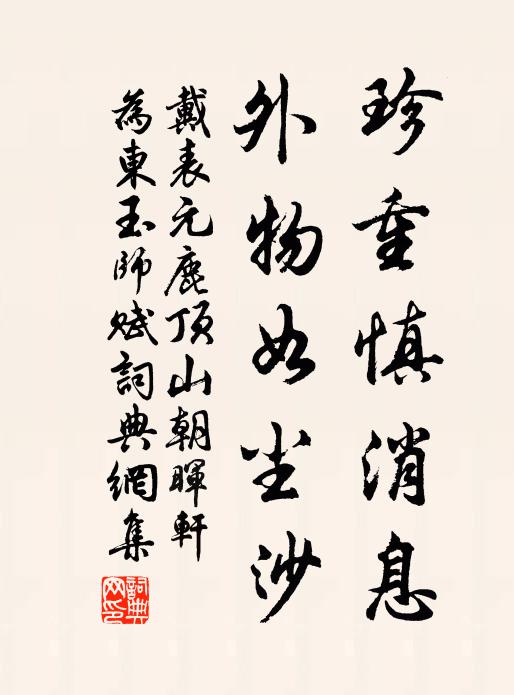 珍重慎消息
外物如尘沙
戴表元鹿頂山朝暉軒
為東玉師賦詞典網集
詞典
网印